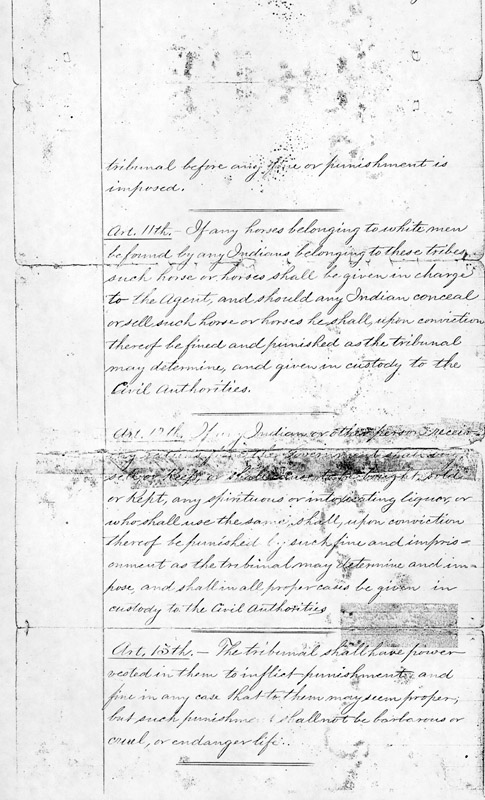 tribunal before any fine or punishment is
imposed.
Art. 11th. – If any horses belonging to white men
be found by any Indians belonging to these tribes,
such horse or horses shall be given in charge
to the Agent, and should any Indian conceal
or sell such horse or horses he shall, upon conviction
thereof be fined and punished as the tribunal
may determine, and given in custody to the
Civil Authorities.
Art. 12th. If any Indian or other person receiv-
sell or keep or shall cause to be bought, sold
or kept, any spirituous or intoxicating liquor, or
who shall use the same, shall, upon conviction
thereof be punished by such fine and impris-
onment as the tribunal may determine and im-
pose, and shall in all proper cases be given in
custody to the Civil Authorities
Art. 13th. – The tribunal shall have power
vested in them to inflict punishment, and
fine in any case that to them may seem proper;
but such punishment shall not be barbarous or
cruel, or endanger life.